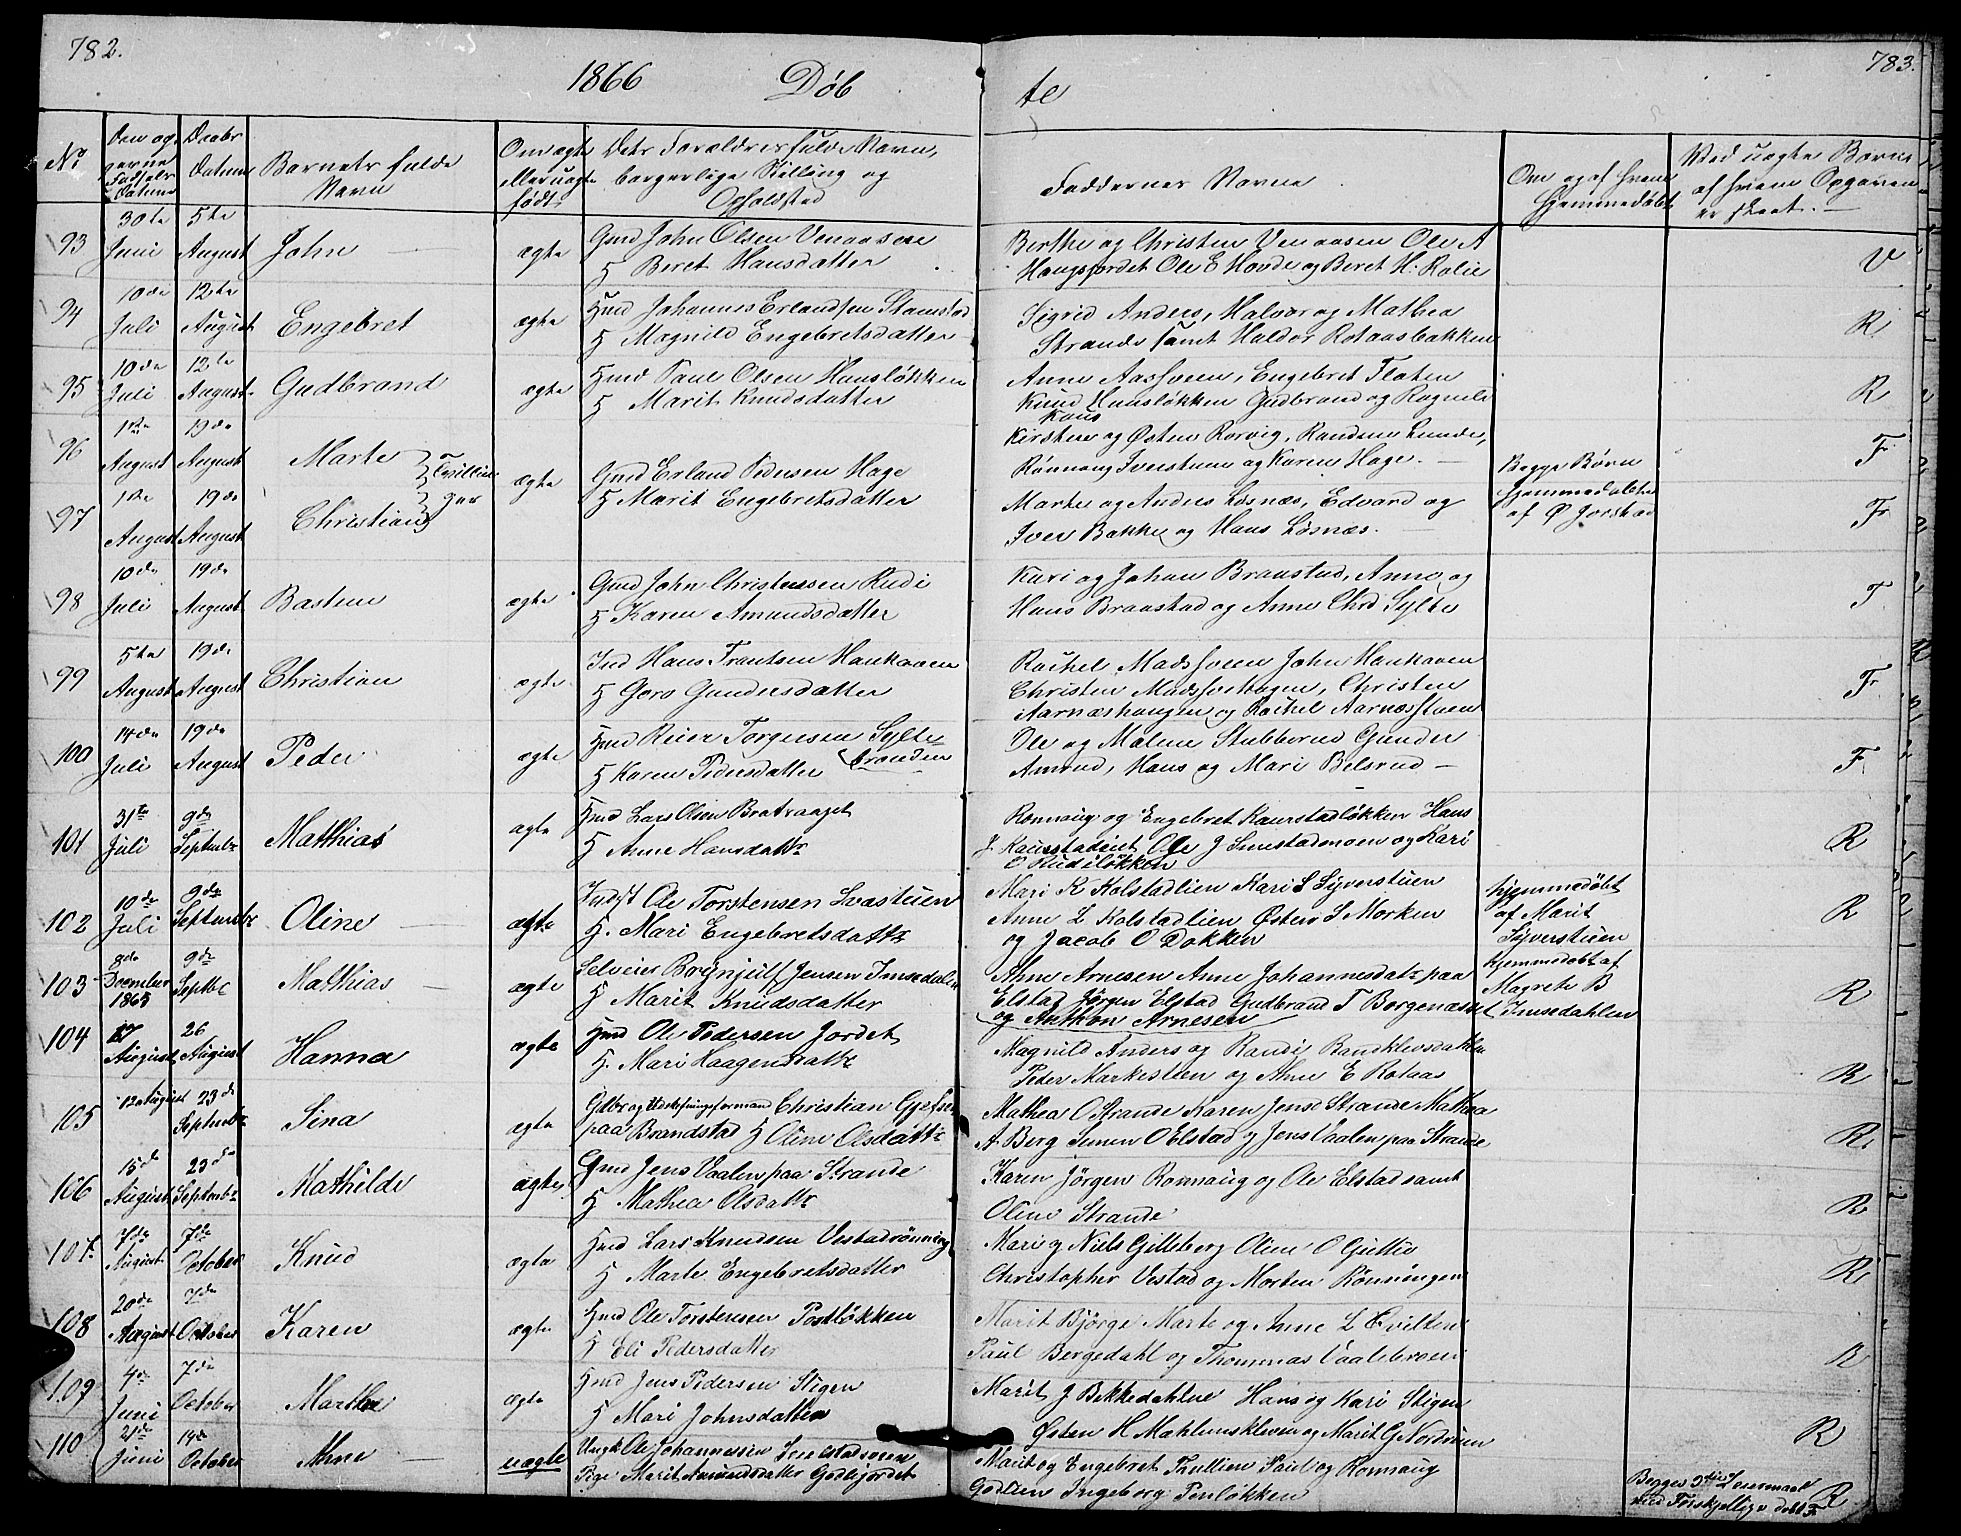 782.
1866 Døb
te
783.
No
Barnets fulde Navn
Om ægte eller uægte født
Dets Forældres fulde Navn, borgerlige Stilling og Opholdsted
Faddernes Navne
Om og af hvem Hjemmedøbt
Ved uægte Børn af hvem Opgaven er skeet.
93 30te Juni 5te August John ægte Gmd John Olsen Venaasen
H Beret Hansdatter
Berthe og Christen Venaasen Ole A
Haugsjordet Ole E Hovde og Beret H: Kolie
V
94 10de Juli 12te August Engebret ægte Hmd Johannes Erlandsen Stamstad
H Magnild Engebretsdatter
Sigrid Anders, Halvor og Mathea
Strande samt Haldor Rotaasbakken
R
95 10de Juli 12te August Gudbrand ægte Hmd Paul Olsen Hansløkken
H Marit Knudsdatter
Anne Aassveen, Engebret Flaten
Knud Hansløkken Gudbrand og Ragnild
Kous
R
96 1ste August 19de August Marte } Tvillin
ger
ægte Gmd Erland Pedersen Hage
H Marit Engebretsdatter
Kirsten og Østen Rorvig, Randine Lunde,
Rønnaug Iverstuen og Karen Hage.
Begge Børn
hjemmedøbte
af Ø Jorstad
Fr
97 1ste August 19de August Christian
Marthe og Anders Losnæs, Edvard og
Iver Bakke og Hans Losnæs.
Fr
98 10de Juli 19de August Basten ægte Gmd John Christensen Rudi
H Karen Amundsdatter
Kari og Johan Braastad, Anne og
Hans Braastad og Anne Chrd Sylte
F
99 5te August 19de August Christian ægte Ind Hans Frantsen Haukaaen
H Goro Gundersdatter
Rachel Madssveen John Haukaaen
Christen Madssvehagen, Christen
Aarnæshaugen og Rachel Aarnæsstuen
Fr
100 14de Juli 19de August Peder ægte Hmd Reier Torgersen Sylte
H Karen Pedersdatter branden
Ole og Malene Stubberud Gunder
Amrud, Hans og Mari Belsrud
F
101 31te Juli 9de Septembr Matthias ægte Hmd Lars Olsen Bratraajet
H Anne Hansdattr
Ronnaug og Engebret Kaurstadløkken Hans
J Kaurstadeiet Ole J Smestadmoen og Kari
O Rudiløkken
R
102 10de Juli 9de Septembr Oline ægte Indst Ole Torstensen Svastuen
H. Mari Engebretsdattr
Mari K Kolstadlien Kari S Syverstuen
Anne L Kolstadlien Østen S Morken
og Jacob O Dokken
hjemmedøbt
af Marit
Syverstuen
R
103 8de December 1865 9de Septbr Matthias ægte Selveier Brynjulf Jensen Imsedalen
H Marit Knudsdatter
Ahne Arnesen Anne Johannesdatr paa
Elstad Jørgen Elstad Gudbrand T Borgenæsset
og Anthon Arnesen
hjemmedøbt af
Magrete B
Imsedahlen
R
104 17 August 26 August Hanna ægte Hmd Ole Pedersen Jordet
H. Mari Haagensdattr
Magnild Anders og Randi Randklevsdahlen
Peder Markestuen og Ahne E Rotaas
R
105 12 August 23de Septembr Sina ægte Gjbr og Udskiftningsformand Christian Gjefsen
paa Brandstad H Oline Olsdattr
Mathea O Strande Karen Jensd Strande Mathea
A Berg Simen O Elstad og Jens Vaalen paa Strande
R
106 15de August 23de Septembr Mathilde ægte Gmd Jens Vaalen paa Strande
H Mathea Olsdattr
Karen Jørgen Ronnaug og Ole Elstad samt
Oline Strande
R
107. 7de August 7de October Knud ægte Hmd Lars Knudsen Vestadrønning
H Marte Engebretsdatter
Mari og Niels Gilleberg Oline O Guttu
Christopher Vestad og Morten Rønningen
R
108 20de August 7de October Karen ægte Hmd Ole Torstensen Postløkken
H Eli Pedersdatter
Marit Bjørge Marte og Anne L Qvilten
Paul Bergedahl og Thommas Vaalebroen
R
109 4de Juni 7de October Marthe ægte Hmd Jens Pedersen Stigen
H Mari Johnsdatter
Marit J Bekkedahlen Hans og Kari Stigen
Østen H Mahlumskleven og Marit G Nordruen
R
110 21de Juni 14de October Ahne uægte Ungk Ole Johannessen
Pige Marit Amundsdatter Godlijordet
Marit og Engebret Thullien Paul og Ronnaug
Godlien Ingeborg Penløkken
Begges 2det Leiermaal
med Forskjellige
R